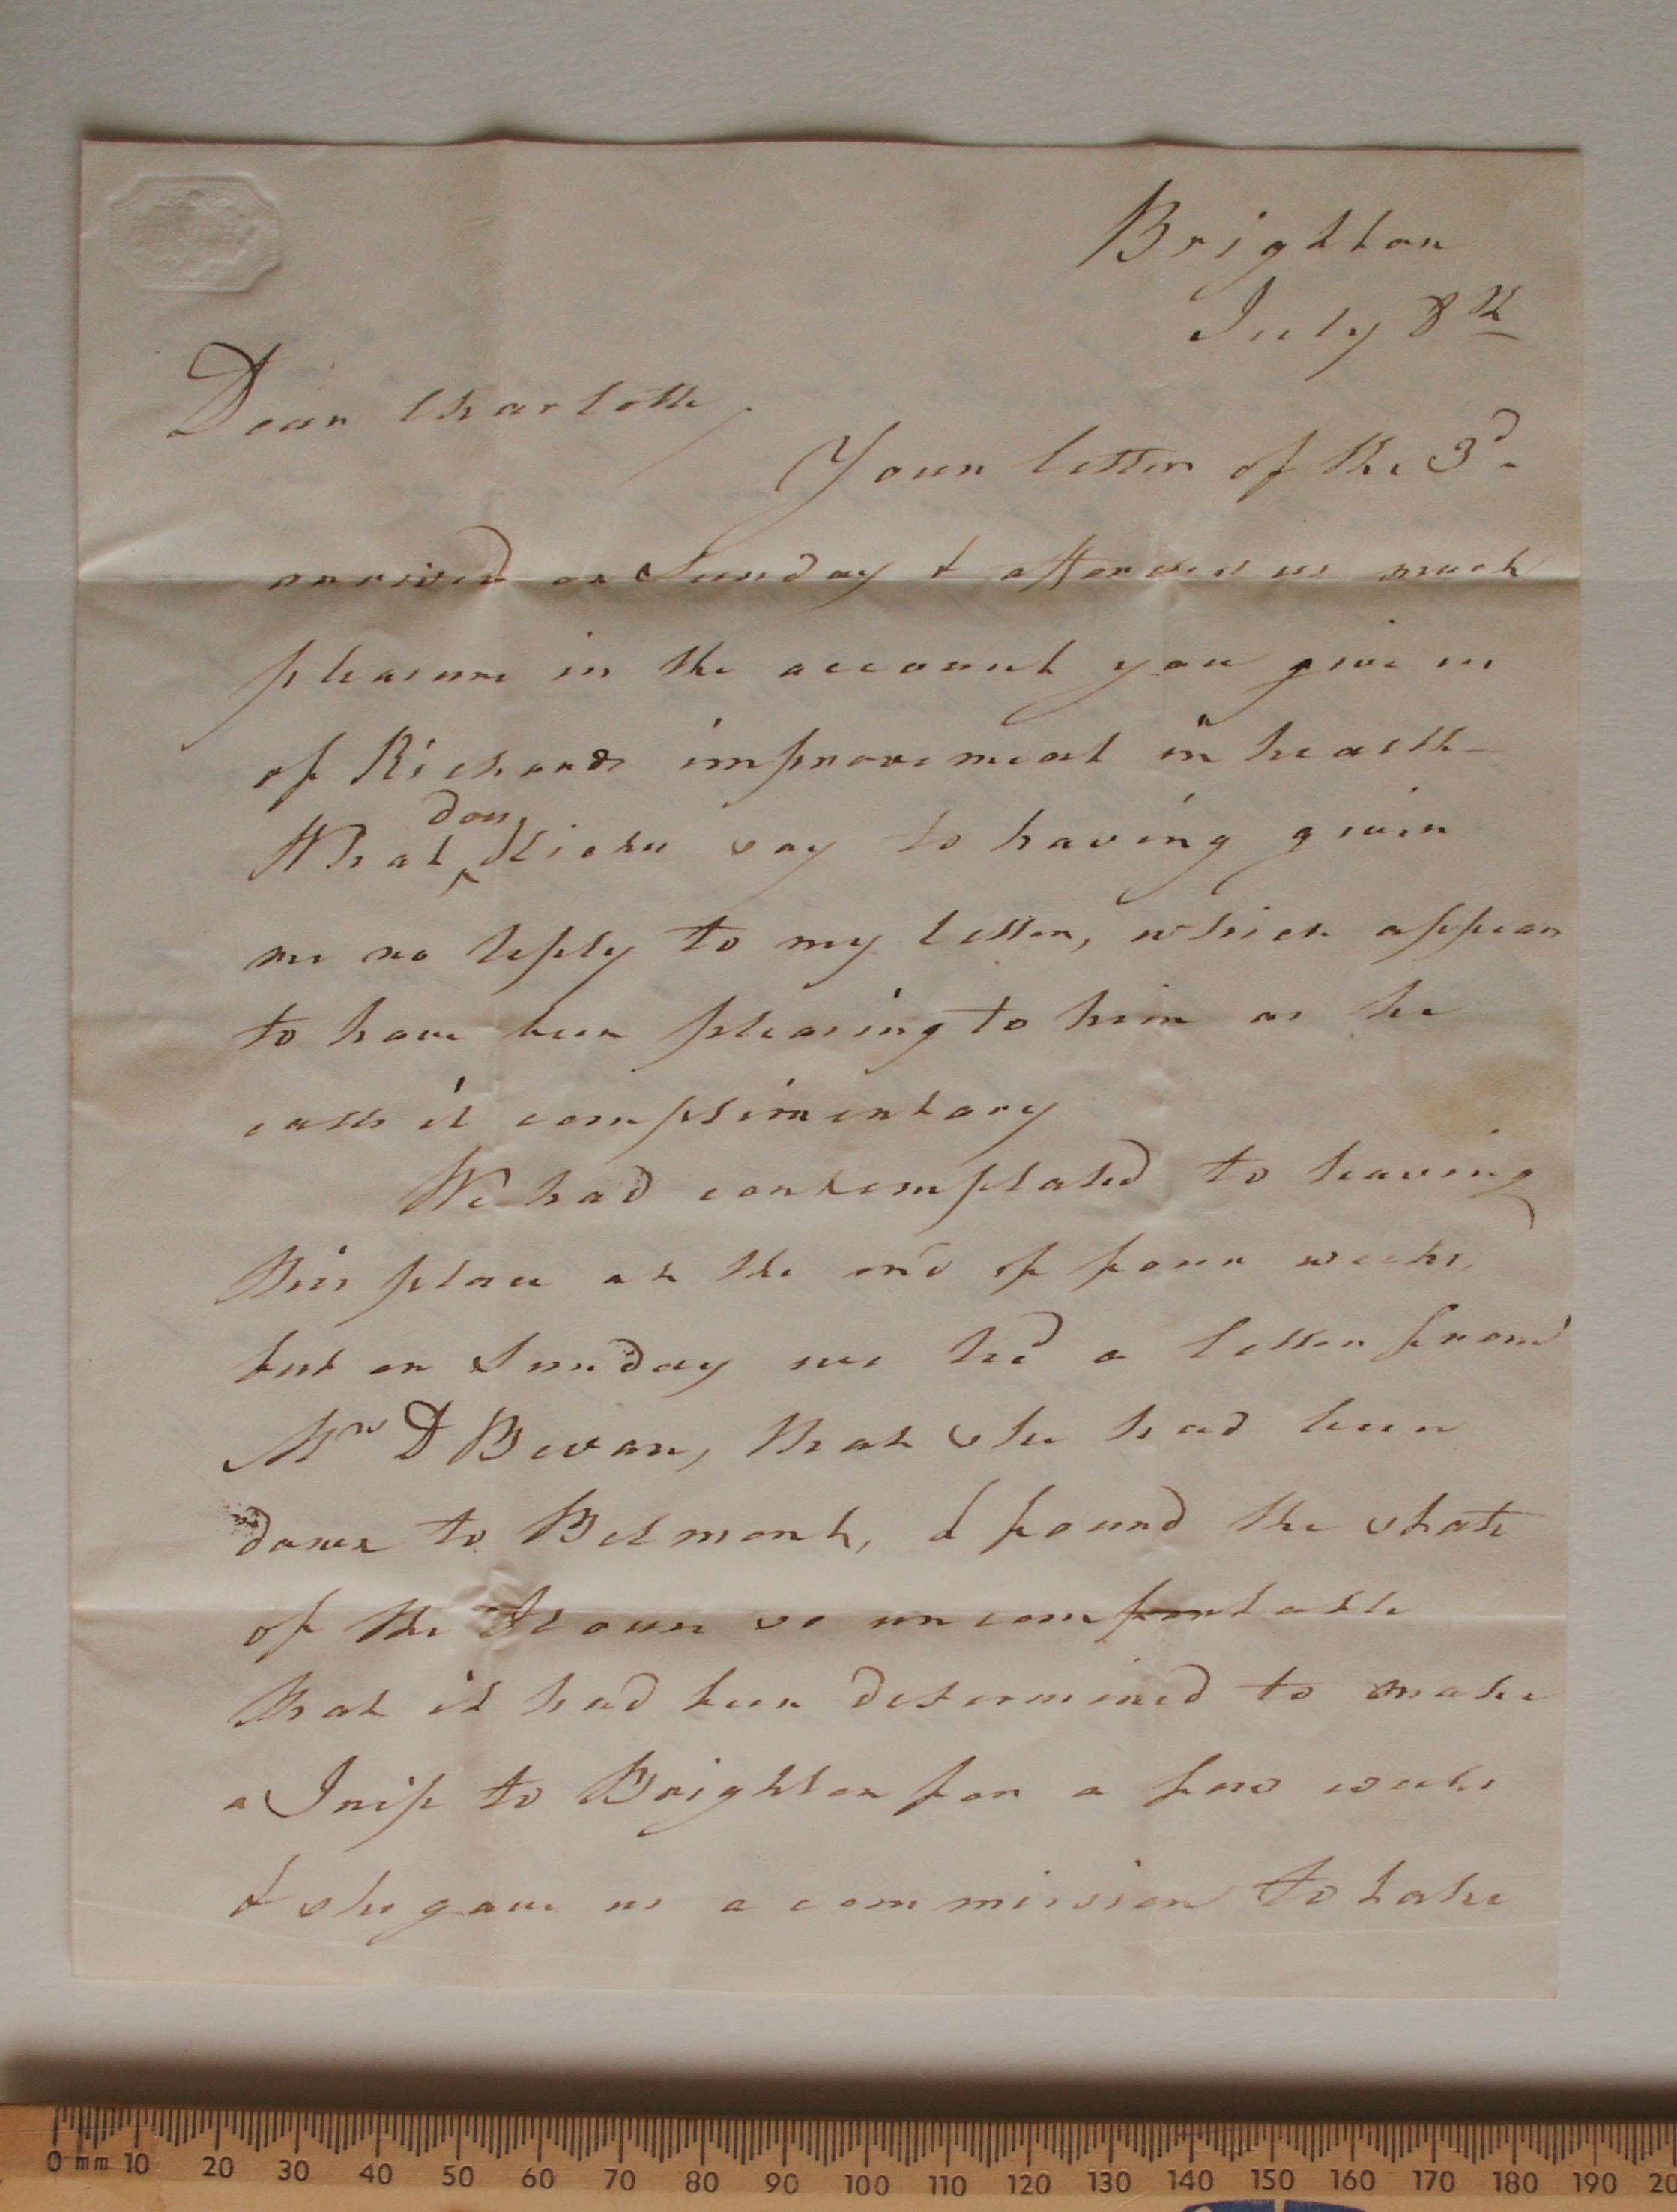 Brighton
July 8th
Dear Charlotte,
Your letter of the 3d.
arrived on Sunday & afforded us much
pleasure in the account you give us
of Richards improvement in health -
does
What Richd say to having given
me no reply to my letter, which appears
to have been pleasing to him as he
calls it complimentary
We had contemplated to leaving
this place at the end of four weeks,
but on Sunday we had a letter from
Mrs D Bevan, that she had been
down to Belmont, & found the state
of the House so uncomfortable
that it had been determined to make
a Trip to Brighton for a few weeks
& she gave us a commission to take
0 mm 10 20 30 40 50 60 70 80 90 100 110 120 130 140 150 160 170 180 190 20